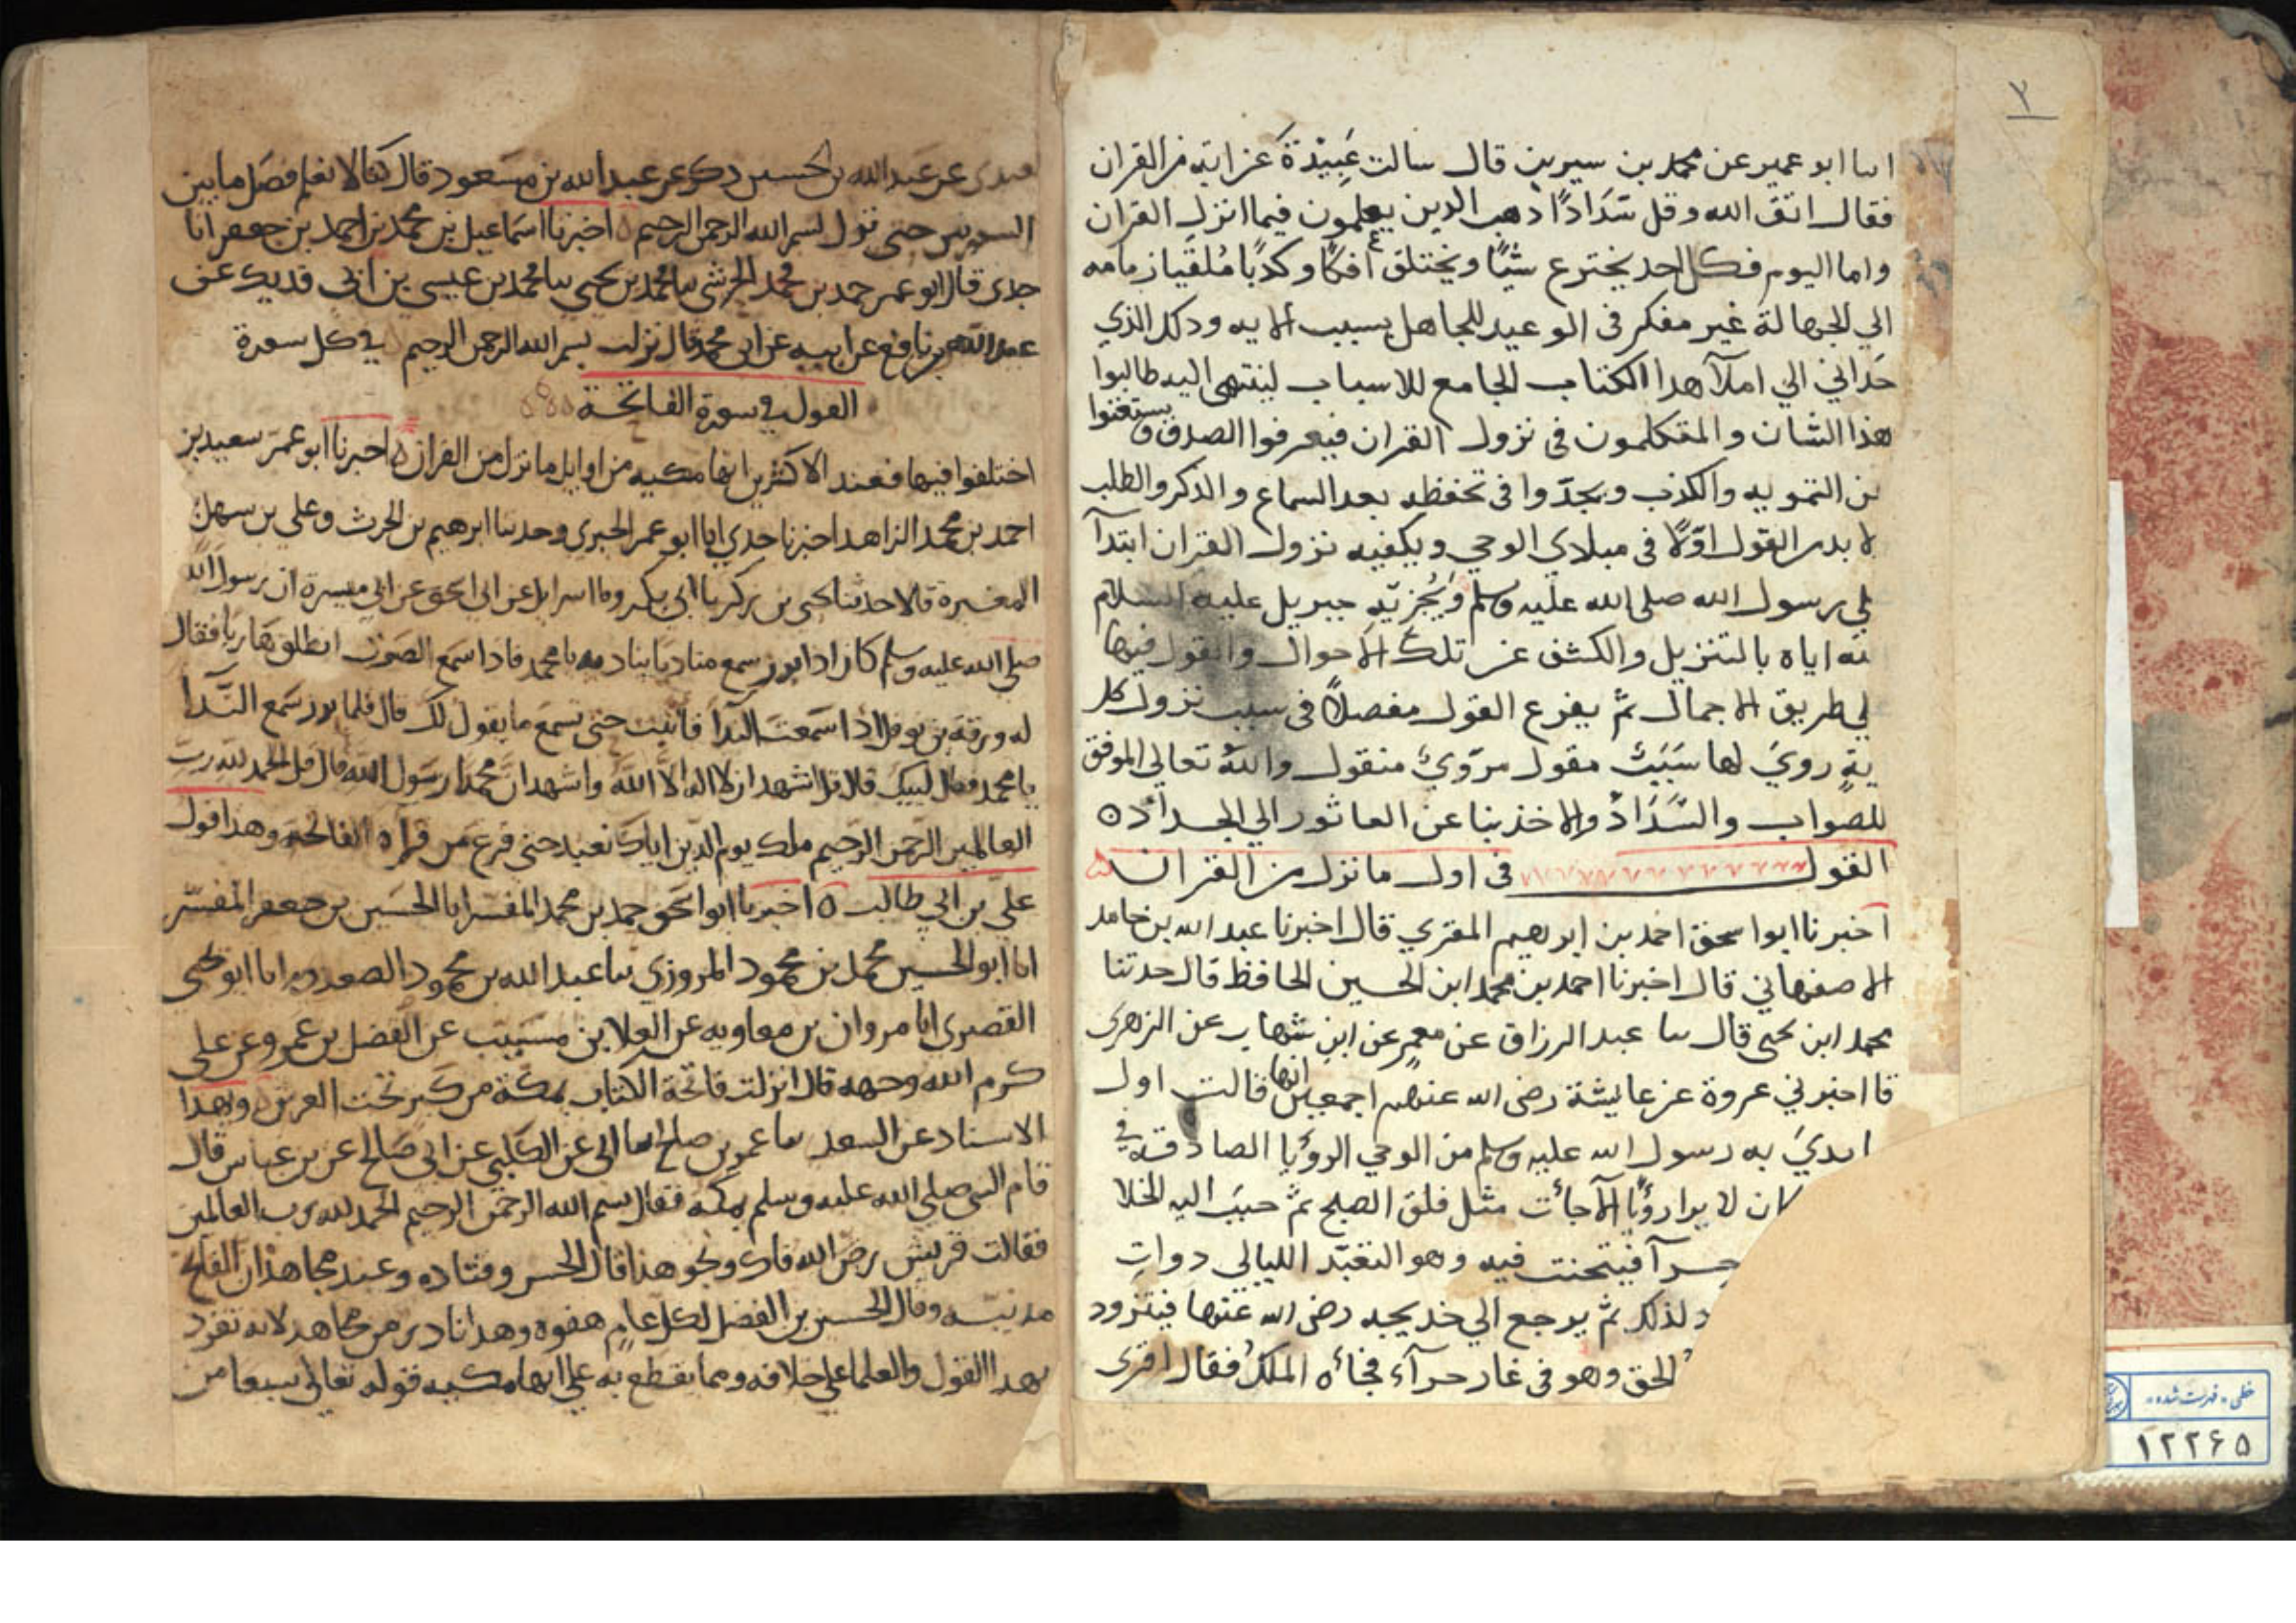 ٣
ابنا ابو عمير عن محمد بن سيرين قال سالت عَبِيْدَةَ عن ايةٍ من القران
فقال اتق الله وقل سَدَادًا ذهب الذين يعلمون فيما انزل القران
واما اليوم فكل احد يخترع شيًا ويختلق افكًا وكذبًا مُلقيا زمامه
الي الجهالة غير مفكر فى الوعيد للجاهل بسبب الايه وذلك الذي
حَدَاني الي املآ هذا الكتاب الجامع للاسباب لينتهى اليه طالبوا
هذا الشان والمتكلمون فى نزول القران فيعرفوا الصدق ويستغنوا
من التمويه والكذب ويجدّوا فى تحفظه بعد السماع والذكر والطلب
لا بد من القول اوّلًا فى مبادي الوحي وكيفيه نزول القران ابتدآ
لي رسول الله صلى الله عليه وسلم جبريل عليه السلام
اياه بالتنزيل والكشف عن تلك الاحوال والقول فيها
لي طريق الاجمال ثم يفرع القول مفصلًا فى سبب نزول كل
يةٍ رويَ لها سَبَبٌ مقول مرويٌ منقول والله تعالى الموفق
للصواب والسَّدَادْ والاخذ بنا عن العاثور الي الجداد ه
القول فى اول ما نزل من القران
اخبرنا ابو اسحق احمد بن ابرهيم المقري قال اخبرنا عبد الله بن حامد
الاصفهاني قال اخبرنا احمد بن محمد ابن الحسين الحافظ قال حدثنا
محمد ابن يحيى قال سا عبد الرزاق عن معمر عن ابن شهاب عن الزهرى
قا اخبرني عروة عن عايشة رضى الله عنهم اجمعين انها قالت اول
ابديَ به رسول الله عليه وسلم من الوحي الرؤيا الصادقة في
كان لا يرا رؤيًا الا جأت مثل فلق الصبح ثمّ حبب اليه الخلا
حرآ فيتحنث فيه وهو التعبّد الليالي دواتِ
لذلك ثم يرجع الي خديجه رضى الله عنها فيتزود
الحق وهو فى غار حرآء فجأه الملكُ فقال اقرى
عن عبد الله بن الحسين ذكر عن عبد الله بن مسعود قال كنا لا نعلم فصَل ما بين
السورتين حتى تنزل بسم الله الرحمن الرحيم ه اخبرنا اسماعيل بن محمد بن احمد بن جعفر انا
جدى قال ابو عمر حمد بن محمد الحرشى سا محمد بن يحيى سا محمد بن عيسى بن ابي فديك عن
عبد الله بن نافع عن ابيه عن ابن محمد قال نزلت بسم الله الرحمن الرحيم في كل سورة
القول في سورة الفاتحة
اختلفوا فيها فعند الاكثرين انها مكيه من اوايل ما نزل من القران ه اخبرنا ابو عمر سعيد بن
احمد بن محمد الزاهد اخبرنا جدي ابا ابو عمر الحيرى وحدسا ابرهيم بن الحرث وعلي بن سهل
المغيرة قالا حدثنا يحيى بن ابى بكر وما اسرايل عن ابى اسحق عن ابى ميسرة ان رسول الله
صلى الله عليه وسلم كان اذا برز سمع مناديا يناديه يا محمد فاذا سمع الصوت انطلق هاربا فقال
له ورقة بن نوفل اذا سمعت الندا فاثبت حتى تسمع ما يقول لك قال فلما برز سمع النّدا
يا محمد فقال لبيك قال قل اشهد ان لا اله الا الله واشهد ان محمدًا رسول الله قال قل الحمد لله رب
العالمين الرحمن الرحيم ملك يوم الدين اياك نعبد حتى فرغ من قراه الفاتحة وهذا قول
علي بن ابي طالب ه اخبرنا ابو اسحق حمد بن محمد المفسر ابا الحسين بن جعفر المفسّر
انا ابو الحسين محمد بن محمود المروزي سا عبد الله بن محمود السعدى انا ابو يحيى
القصرى انا مروان بن معاويه عن العلا بن مسيب عن الفضل بن عمرو عن علي
كرم الله وجهه قال انزلت فاتحة الكتاب بمكة من كنز تحت العرش وبهذا
الاسناد عن السعد سا عمر بن صلح سا ابى عن الكلبي عن ابي صَالح عن بن عباس قال
قام النبى صلى الله عليه وسلم بمكة فقال بسم الله الرحمن الرحيم الحمد لله رب العالمين
فقالت قريش رض الله فاك ونحو هذا قال الحسن وقتاده وعند مجاهد ان الفاتحة
مدنيه وقال الحسين بن الفضل لكل عالم هفوة وهذا نادره من مجاهد لانه تفرد
بهذا القول والعلما على خلافه ومما يقطع به على انها مكيه قوله تعالى سبعا من
خطی - فهرست شده
١٢٢۶۵